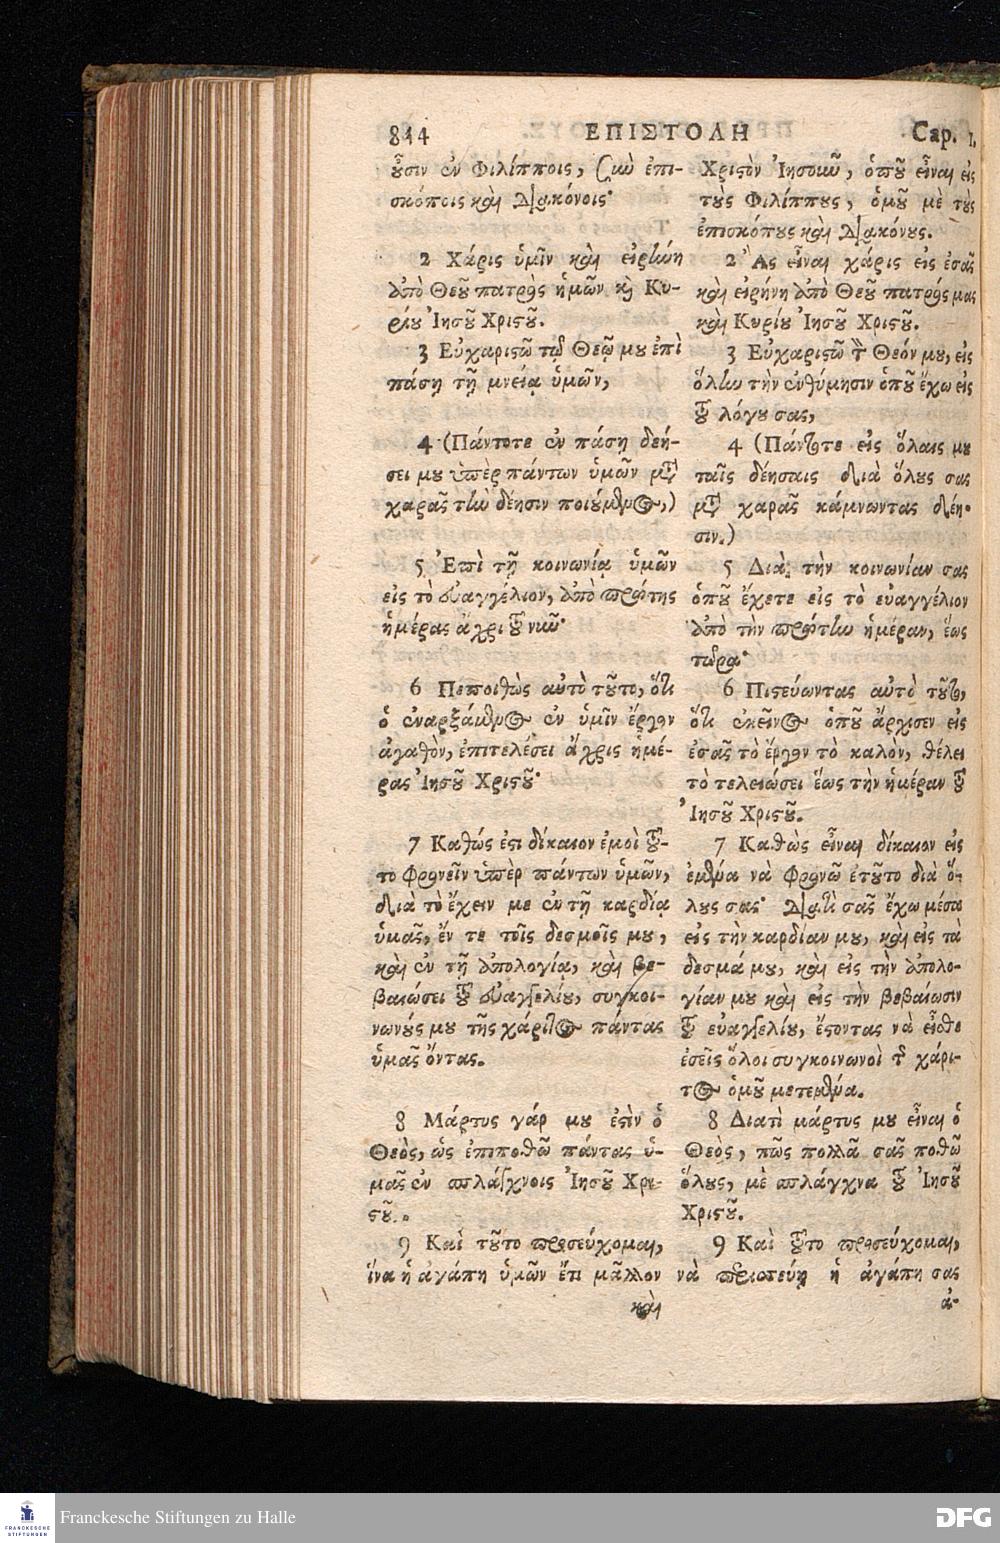 844 ΕΠΙΣΤΟΛΗ Cap. 1.
οὖσιν ἐν Φιλίπποις, σὺν ἐπι-
σκόποις καὶ διακόνοις·
2 Χάρις ὑμῖν καὶ εἰρήνη
ἀπὸ Θεοῦ πατρὸς ἡμῶν καὶ Κυ-
ρίου Ἰησοῦ Χριστοῦ.
3 Εὐχαριστῶ τῷ Θεῷ μου ἐπὶ
πάσῃ τῇ μνείᾳ ὑμῶν,
4 (Πάντοτε ἐν πάσῃ δεή-
σει μου ὑπὲρ πάντων ὑμῶν μετὰ
χαρᾶς τὴν δέησιν ποιούμενος,)
5 Ἐπὶ τῇ κοινωνίᾳ ὑμῶν
εἰς τὸ εὐαγγέλιον, ἀπὸ πρώτης
ἡμέρας ἄχρι τοῦ νῦν·
6 Πεποιθὼς αὐτὸ τοῦτο, ὅτι
ὁ ἐναρξάμενος ἐν ὑμῖν ἔργον
ἀγαθὸν, ἐπιτελέσει ἄχρις ἡμέ-
ρας Ἰησοῦ Χριστοῦ·
7 Καθώς ἐστι δίκαιον ἐμοὶ τοῦ-
το φρονεῖν ὑπὲρ πάντων ὑμῶν,
διὰ τὸ ἔχειν με ἐν τῇ καρδίᾳ
ὑμᾶς, ἔν τε τοῖς δεσμοῖς μου,
καὶ ἐν τῇ ἀπολογίᾳ, καὶ βε-
βαιώσει τοῦ εὐαγγελίου, συγκοι-
νωνούς μου τῆς χάριτος πάντας
ὑμᾶς ὄντας.
8 Μάρτυς γάρ μου ἐστὶν ὁ
Θεὸς, ὡς ἐπιποθῶ πάντας ὑ-
μᾶς ἐν σπλάγχνοις Ἰησοῦ Χρι-
στοῦ.
9 Καὶ τοῦτο προσεύχομαι,
ἵνα ἡ ἀγάπη ὑμῶν ἔτι μᾶλλον
καὶ
Χριστὸν Ἰησοῦν, ὁποῦ εἶναι εἰς
τοὺς Φιλίππους, ὁμοῦ μὲ τοὺς
ἐπισκόπους καὶ διακόνους.
2 Ἂς εἶναι χάρις εἰς ἐσᾶς
καὶ εἰρήνη ἀπὸ Θεοῦ πατρός μας
καὶ Κυρίου Ἰησοῦ Χριστοῦ.
3 Εὐχαριστῶ τὸν Θεόν μου, εἰς
ὅλην τὴν ἐνθύμησιν ὁποῦ ἔχω εἰς
τοῦ λόγου σας,
4 (Πάντοτε εἰς ὅλαις μου
ταῖς δέησαις διὰ ὅλους σας
μετὰ χαρᾶς κάμνωντας δέη-
σιν.)
5 Διὰ τὴν κοινωνίαν σας
ὁποῦ ἔχετε εἰς τὸ εὐαγγέλιον
ἀπὸ τὴν πρώτην ἡμέραν, ἕως
τώρα·
6 Πιστεύωντας αὐτὸ τοῦτο,
ὅτι ἐκεῖνος ὁποῦ ἄρχισεν εἰς
ἐσᾶς τὸ ἔργον τὸ καλὸν, θέλει
τὸ τελειώσει ἕως τὴν ἡμέραν τοῦ
Ἰησοῦ Χριστοῦ.
7 Καθὼς εἶναι δίκαιον εἰς
ἐμένα νὰ φρονῶ ἐτοῦτο διὰ ὅ-
λους σας· Διατὶ σᾶς ἔχω μέσα
εἰς τὴν καρδίαν μου, καὶ εἰς τὰ
δεσμά μου, καὶ εἰς τὴν ἀπολο-
γίαν μου καὶ εἰς τὴν βεβαίωσιν
τοῦ εὐαγγελίου, ἔσοντας νὰ εἶσθε
ἐσεῖς ὅλοι συγκοινωνοὶ τῆς χάρι-
τος ὁμοῦ μετεμένα.
8 Διατὶ μάρτυς μου εἶναι ὁ
Θεὸς, πῶς πολλὰ σᾶς ποθῶ
ὅλους, μὲ σπλάγχνα τοῦ Ἰησοῦ
Χριστοῦ.
9 Καὶ τοῦτο προσεύχομαι,
νὰ περισσεύῃ ἡ ἀγάπη σας
ἀ-
Franckesche Stiftungen zu Halle
DFG
FRANCKESCHE
STIFTUNGEN